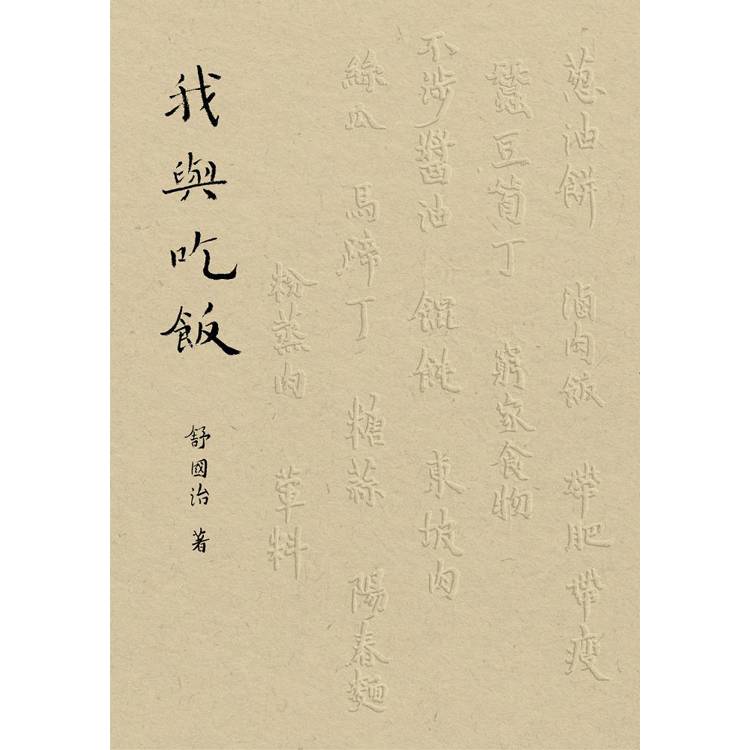 葱油餅 滷肉飯 帶肥帶瘦
蠶豆筍丁 窮家食物
不涉醬油 餛飩 東坡肉
絲瓜 馬蹄丁 糖蒜 陽春麵
粉蒸肉 草料
我與吃飯
舒國治 著